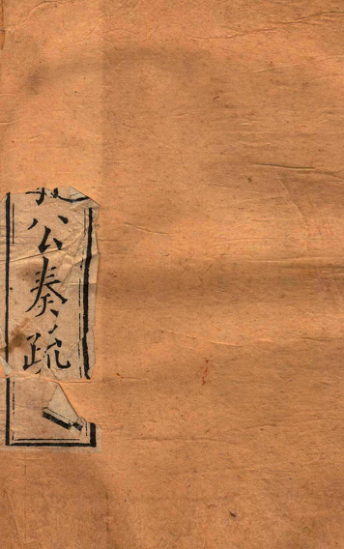 公奏疏